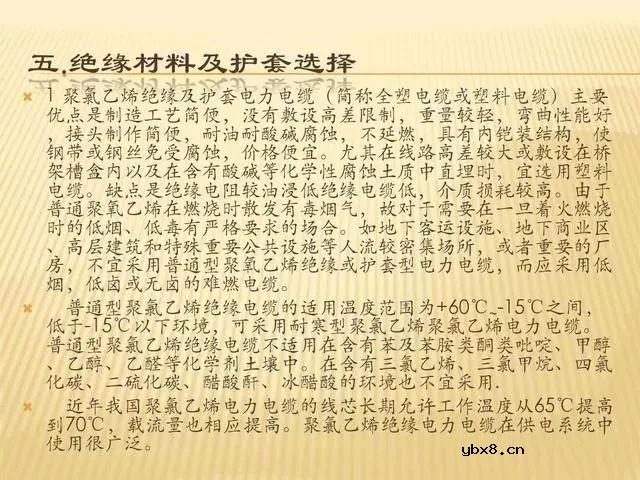 五.绝缘材料及护套选择
1 聚氯乙烯绝缘及护套电力电缆（简称全塑电缆或塑料电缆）主要
优点是制造工艺简便，没有敷设高差限制，重量较轻，弯曲性能好
，接头制作简便，耐油耐酸碱腐蚀，不延燃，具有内铠装结构，使
钢带或钢丝免受腐蚀，价格便宜。尤其在线路高差较大或敷设在桥
架槽盒内以及在含有酸碱等化学性腐蚀土质中直埋时，宜选用塑料
电缆。缺点是绝缘电阻较油浸低绝缘电缆低，介质损耗较高。由于
普通聚氧乙烯在燃烧时散发有毒烟气，故对于需要在一旦着火燃烧
时的低烟、低毒有严格要求的场合。如地下客运设施、地下商业区
、高层建筑和特殊重要公共设施等人流较密集场所，或者重要的厂
房，不宜采用普通型聚氧乙烯绝缘或护套型电力电缆，而应采用低
烟，低卤或无卤的难燃电缆。
普通型聚氯乙烯绝缘电缆的适用温度范围为+60℃~-15℃之间，
低于-15℃以下环境，可采用耐寒型聚氯乙烯聚氯乙烯电力电缆。
普通型聚氯乙烯绝缘电缆不适用在含有苯及苯胺类酮类吡啶、甲醇
、乙醇、乙醛等化学剂土壤中。在含有三氯乙烯、三氯甲烷、四氯
化碳、二硫化碳、醋酸酐、冰醋酸的环境也不宜采用.
近年我国聚氯乙烯电力电缆的线芯长期允许工作温度从65℃提高
到70℃，载流量也相应提高。聚氯乙烯绝缘电力电缆在供电系统中
使用很广泛。
ybx8.cn